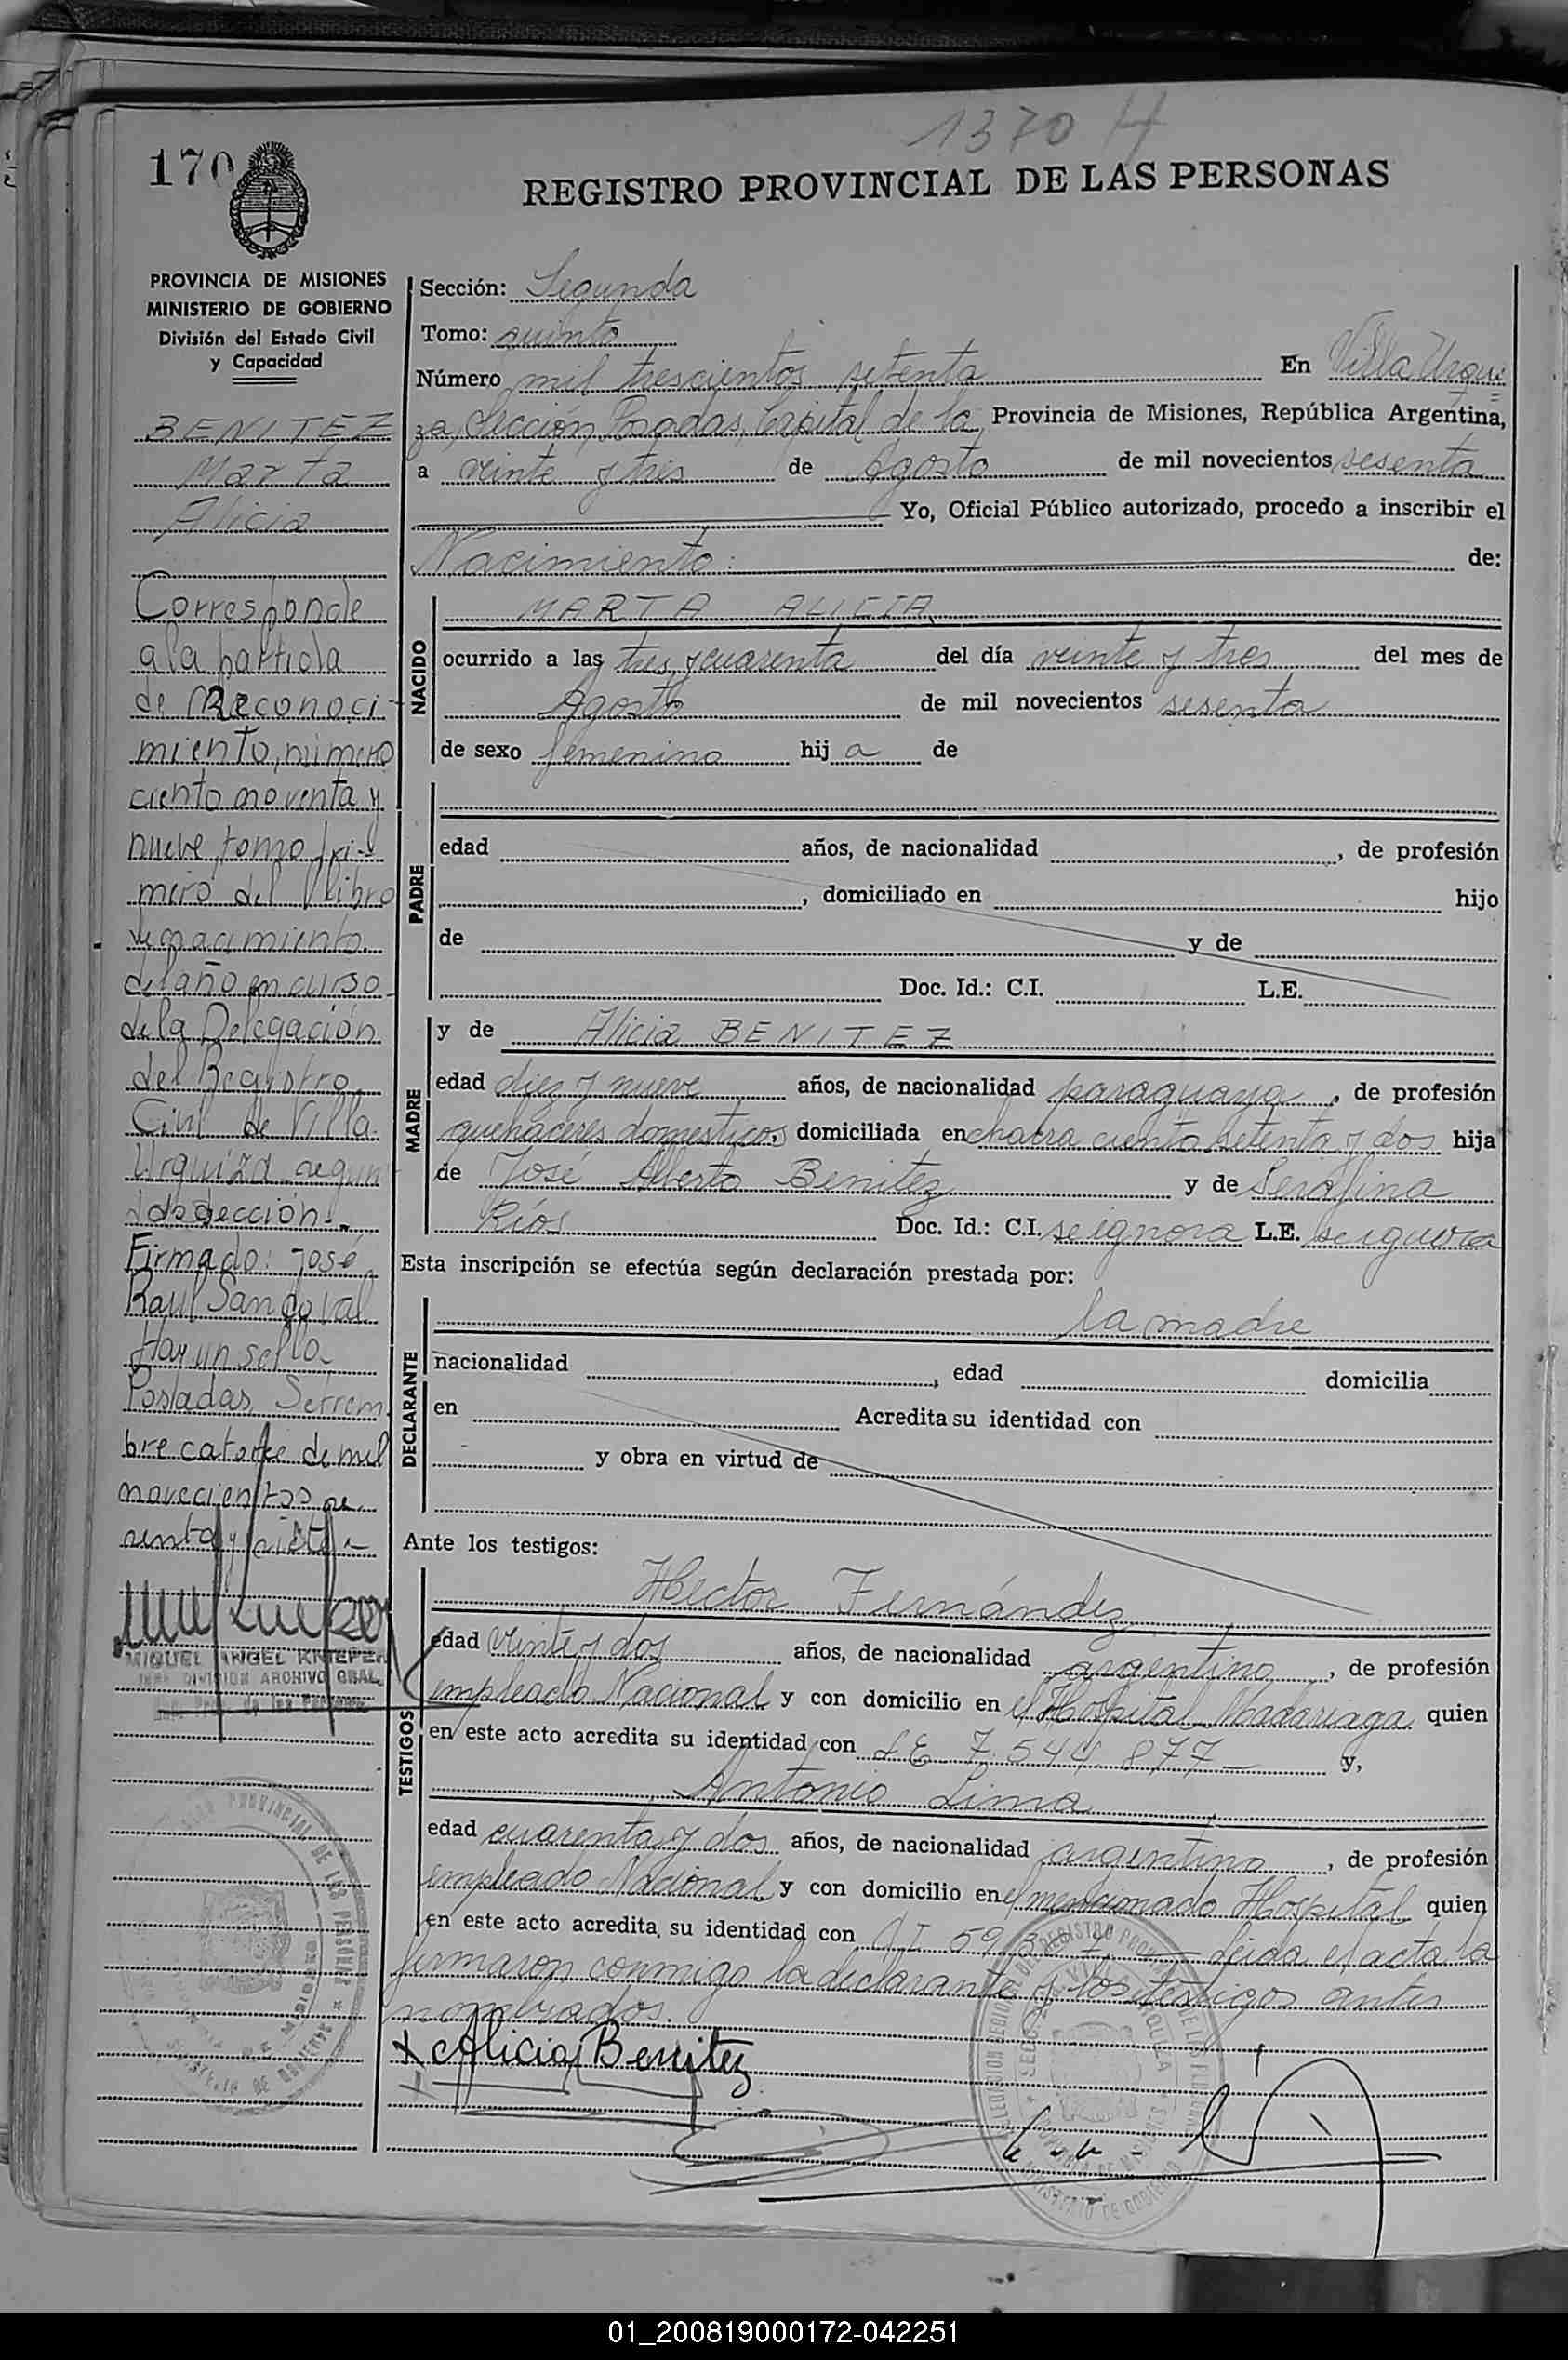 1370 H
170
REGISTRO PROVINCIAL DE LAS PERSONAS
PROVINCIA DE MISIONES
MINISTERIO DE GOBIERNO
División del Estado Civil
y Capacidad
BENITEZ
Marta
Alicia
Corresponde
a la partida
de Reconoci-
miento, número
ciento noventa y
nueve, tomo pri-
mero del libro
de nacimiento
del año en curso
de la Delegación
del Registro
Civil de Villa
Urquiza segun
da sección.-
Firmado: José
Raul Sandoval
Hay un sello
Posadas, Setiem
bre catorce de mil
novecientos se
senta y siete-
MIGUEL ANGEL
JEFE DIVISION ARCHIVO GRAL.
Sección: Segunda
Tomo: quinto
Número mil trescientos setenta En Villa Urqui
za, Sección Posadas, Capital de la Provincia de Misiones, República Argentina,
a veinte y tres de Agosto de mil novecientos sesenta
Yo, Oficial Público autorizado, procedo a inscribir el
Nacimiento: de:
NACIDO
MARTA ALICIA
ocurrido a las tres y cuarenta del día veinte y tres del mes de
Agosto de mil novecientos sesenta
de sexo femenino hij a de
PADRE
edad años, de nacionalidad , de profesión
, domiciliado en hijo
de y de
Doc. Id.: C.I. L.E.
MADRE
y de Alicia BENITEZ
edad diez y nueve años, de nacionalidad paraguaya, de profesión
quehaceres domesticos, domiciliada en chacra ciento setenta y dos hija
de José Alberto Benitez y de Serafina
Ríos Doc. Id.: C.I. se ignora L.E. se ignora
Esta inscripción se efectúa según declaración prestada por:
DECLARANTE
la madre
nacionalidad , edad domicilia
en Acredita su identidad con
y obra en virtud de
Ante los testigos:
TESTIGOS
Hector Fernández
edad veinte y dos años, de nacionalidad argentino, de profesión
empleado Nacional y con domicilio en el Hospital Madariaga quien
en este acto acredita su identidad con LE 7.544.877 y,
Antonio Lima
edad cuarenta y dos años, de nacionalidad argentino, de profesión
empleado Nacional y con domicilio en el mencionado Hospital quien
en este acto acredita su identidad con Leida el acta la
firmaron conmigo la declarante y los testigos antes
nombrados.
x Alicia Benitez
01_200819000172-042251